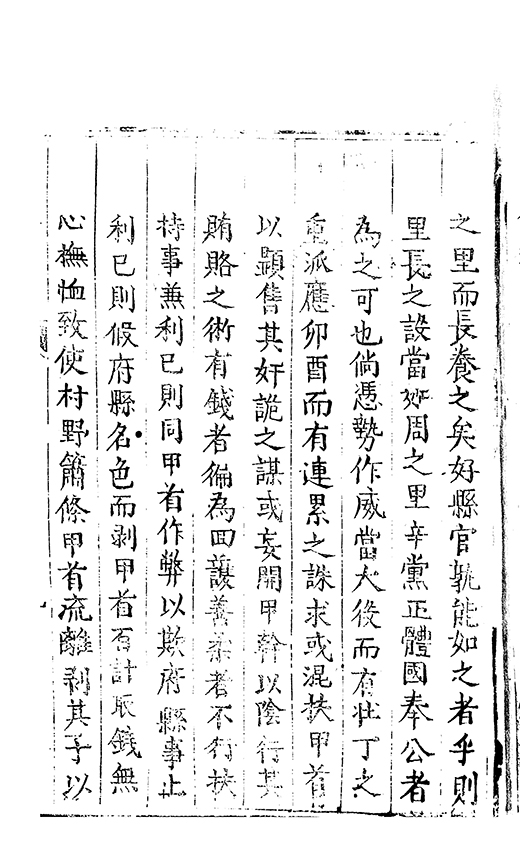 之里而長養之矣好縣官孰能如之者乎則
里長之設當如周之里宰黨正體國奉公者
為之可也倘憑勢作威當大役而有壯丁之
重派應卯酉而有連累之誅求或混扶甲首
以顯售其奸詭之謀或妄開甲幹以陰行其
賄賂之術有錢者徧為回護善柔者不行扶
持事兼利己則同甲首作弊以欺府縣事止
利己則假府縣名色而剥甲首百計取錢無
心撫恤致使村野簫條甲首流離剥其子以